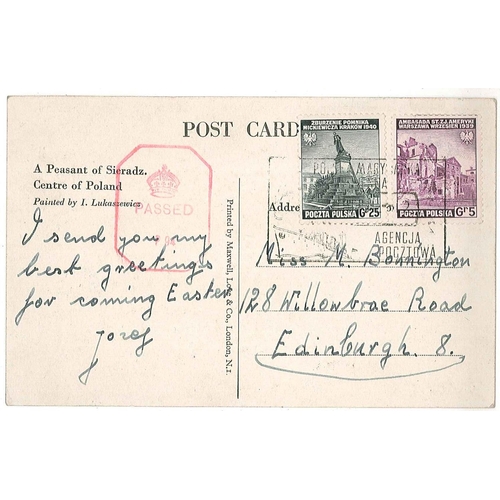 POST CARD
A Peasant of Sieradz.
Centre of Poland
Painted by I. Lukaszewicz
PASSED
I send you my
best greetings
for coming Easter
Jozef
Printed by Maxwell, Love & Co., London, N.1.
ZBURZENIE POMNIKA
MICKIEWICZA KRAKÓW 1940
POCZTA POLSKA Gr 25
AMBASADA ST. ZJ. AMERYKI
WARSZAWA WRZESIEŃ 1939
POCZTA POLSKA Gr 5
AGENCJA
POCZTOWA
Miss M. Bonnington
128 Willowbrae Road
Edinburgh 8.